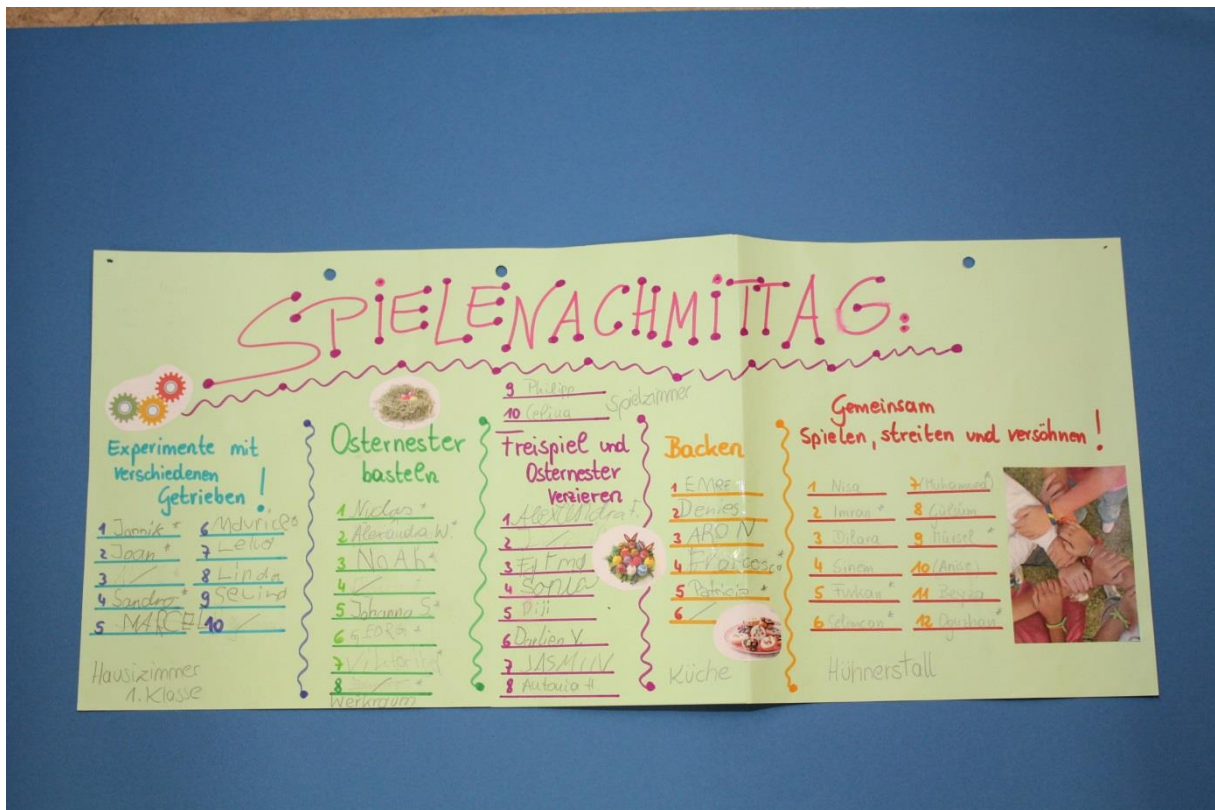 SPIELENACHMITTAG:
Experimente mit
verschiedenen
Getrieben!
1 Jannik*
2 Joan*
3 /
4 Sandra*
5 MARCEL
6 Maurice*
7
8 Linda
9 Selina
10 /
Hausizimmer
1. Klasse
Osternester
basteln
1 Niclas*
2 Alexandra W.*
3 NOAH*
4 /
5 Johanna S.*
6
7
8 / *
Werkraum
9 Philipp
10 Celina
Spielzimmer
Freispiel und
Osternester
verzieren
1 Alexandra F.
2 /
3
4 Sonja
5 Diji
6 Darlien V.
7 JASMIN
8 Antonia H
Backen
1 EMRE
2 Denies
3 ARON
4
5 Patricia *
6 /
Küche
Gemeinsam
Spielen, streiten und versöhnen!
1 Nisa
2 Imran*
3 Dilara
4 Sinem
5 Furkan*
6 Selimcan*
7 (Muhammed)*
8 Gülsüm
9 Hürset*
10
11 Beyza
12 Oguzhan*
Hühnerstall